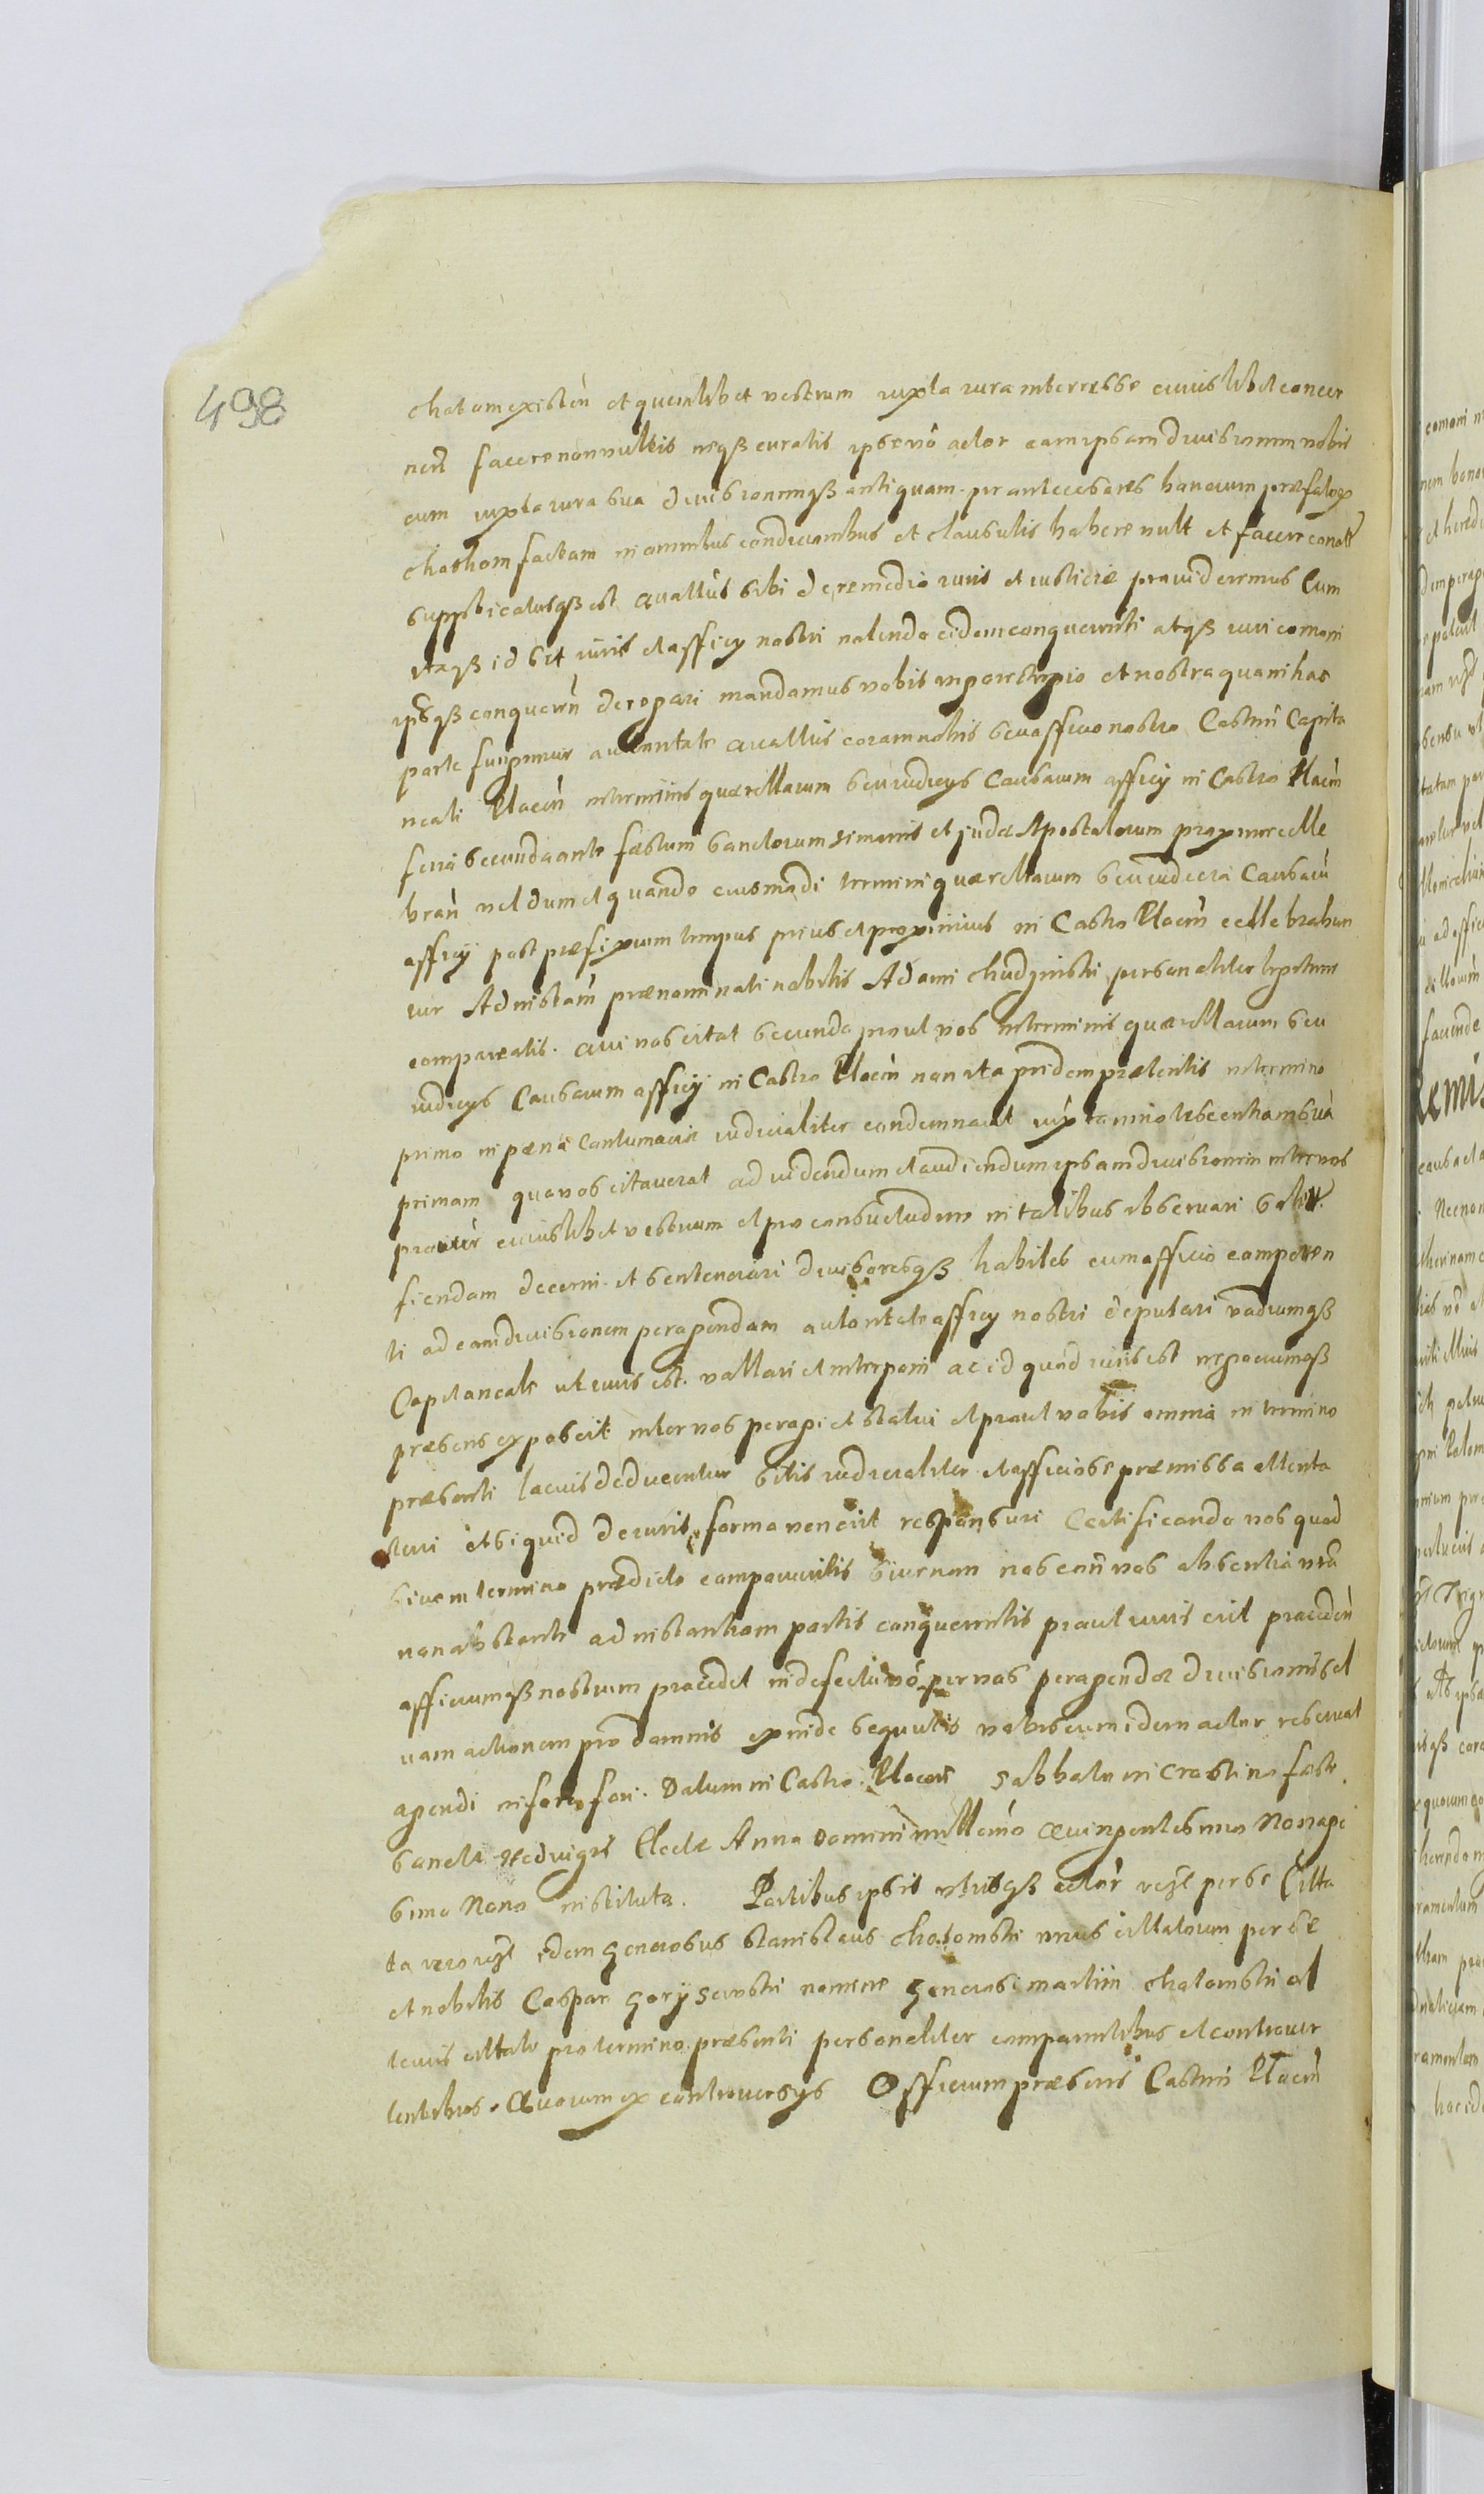 498
chotom existen et quemlibet vestrum iuxta iura interresse cuiuslibet concer
nen facere non vultis neqß curatis ipse vo actor eam ipsam divisionem vobis
cum iuxta iura sua divisionemqß antiquam per antecessores bonorum præfatorum
chothom factam in omnibus condicionibus et clausulis habere vult et facere conatur
supplicatusqß est Quattus sibi de remedio iuris et iusticiæ provideremus Cum
itaqß id sit iuris et officij nostri nolendo eidem conquerenti atqß iuri comoni
ipsqß conqueren derogari mandamus vobis
parte fungimur autoritate Quattus coram nobis seu officio nostro Castren Capita
neali Plocen in terminis quærellarum seu iudicijs Causarum officij in Castro Plocen
feria secunda ante fæstum Sanctorum Simonis et Judæ Apostolorum proxime celle
bran vel dum et quando eiusmodi termini quærellarum seu iudicia Causarum
officij post præfixum tempus prius et proximius in Castro Plocen cellebrabun
tur Ad instan prænominati nobilis Adami Chudzinski personaliter
compareatis. Qui vos citat secundo prout vos in terminis quærellarum seu
iudicijs Causarum officij in Castro Plocen non ita pridem præteritis in termino
primo in pæna contumaciæ iudicialiter condemnavit iuxta
primam qua vos citaverat ad videndum et audiendum ipsam divisionem inter vos
cuiuslibet vestrum et pro consuetudine in talibus observari solitt.
fiendam decerni et sentenciari divisoresqß habiles cum officio competen
ti ad eam divisionem peragendam autoritate officij nostri deputari vadiumqß
Capitaneale ut iuris est. vallari et interponi ac id quod iuris est negociumqß
præsens exposcit inter vos peragi et statui et prout vobis omnia in termino
præsenti lacius deducentur Sitis iudicialiter et officiose præmissa attenta
turi et si quid de iuris forma venerit responsuri Certificando vos quod
sive in termino prædicto comparueritis sive non nos eam vos absentia vra
non obstante ad instantiam partis conquerentis prout iuris erit præceden
officiumqß nostrum procedet in defectu vo per vos peragendæ divisionis sal
vam actionem pro damnis exinde sequutis vobiscum idem actor reservat
agendi in foro fori. Datum in Castro Plocen Sabbato in Crastino festi
Sanctæ Hedvigis Electæ Anno Domini millemo Quingentesimo Nonage
simo Nono instituta. Partibus ipsis utrisqß actor per se Citta
ta vero idem generosus Stanislaus Chotomski unus cittatorum per se
et nobilis Caspar Goryszewski nomine generosi martini Chotomski al
terius cittato pro termino præsenti personaliter comparentibus et controver
tentibus. Quorum ex controversijs Officium præsens Castren Plocen